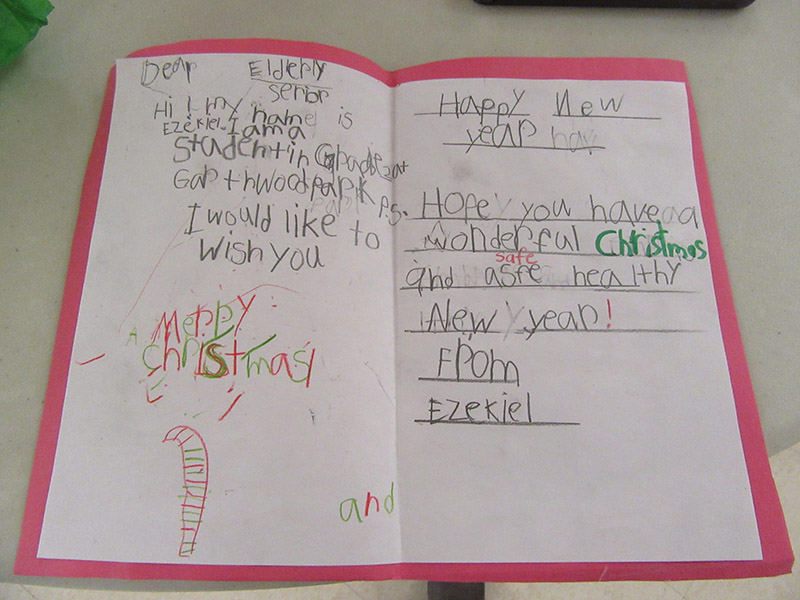 Dear Elderly
senior
Hi! my name is
Ezekiel. I am a
Student in Grade 2 at
Garthwood park P.S.
I would like to
wish you
Merry
Christmas
and
Happy New
year
Hope you have a
wonderful Christmas
safe
and asfe healthy
New year!
From
Ezekiel